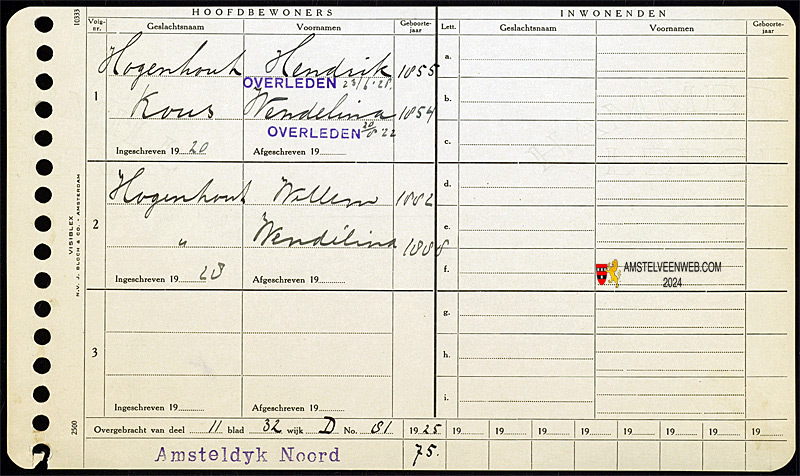 HOOFDBEWONERS
INWONENDEN
Volg-nr.
Geslachtsnaam
Voornamen
Geboorte-jaar
Lett.
Geslachtsnaam
Voornamen
Geboorte-jaar
10333
1
Hogenhout Hendrik 1855
OVERLEDEN 23/6-28.
Kous Wendelina 1854
OVERLEDEN 20/8 22
Ingeschreven 19 20 Afgeschreven 19
2
Hogenhout Willem 1882
" Wendélina 1888
Ingeschreven 19 28 Afgeschreven 19
3
Ingeschreven 19 Afgeschreven 19
a.
b.
c.
d.
e.
f.
g.
h.
i.
AMSTELVEENWEB.COM
2024
VISIBLEX
N.V. J. BLOCH & CO. - AMSTERDAM
2500
Overgebracht van deel 11 blad 32 wijk D No. 81 19 25 19 19 19 19 19 19 19 19
Amsteldyk Noord 75.